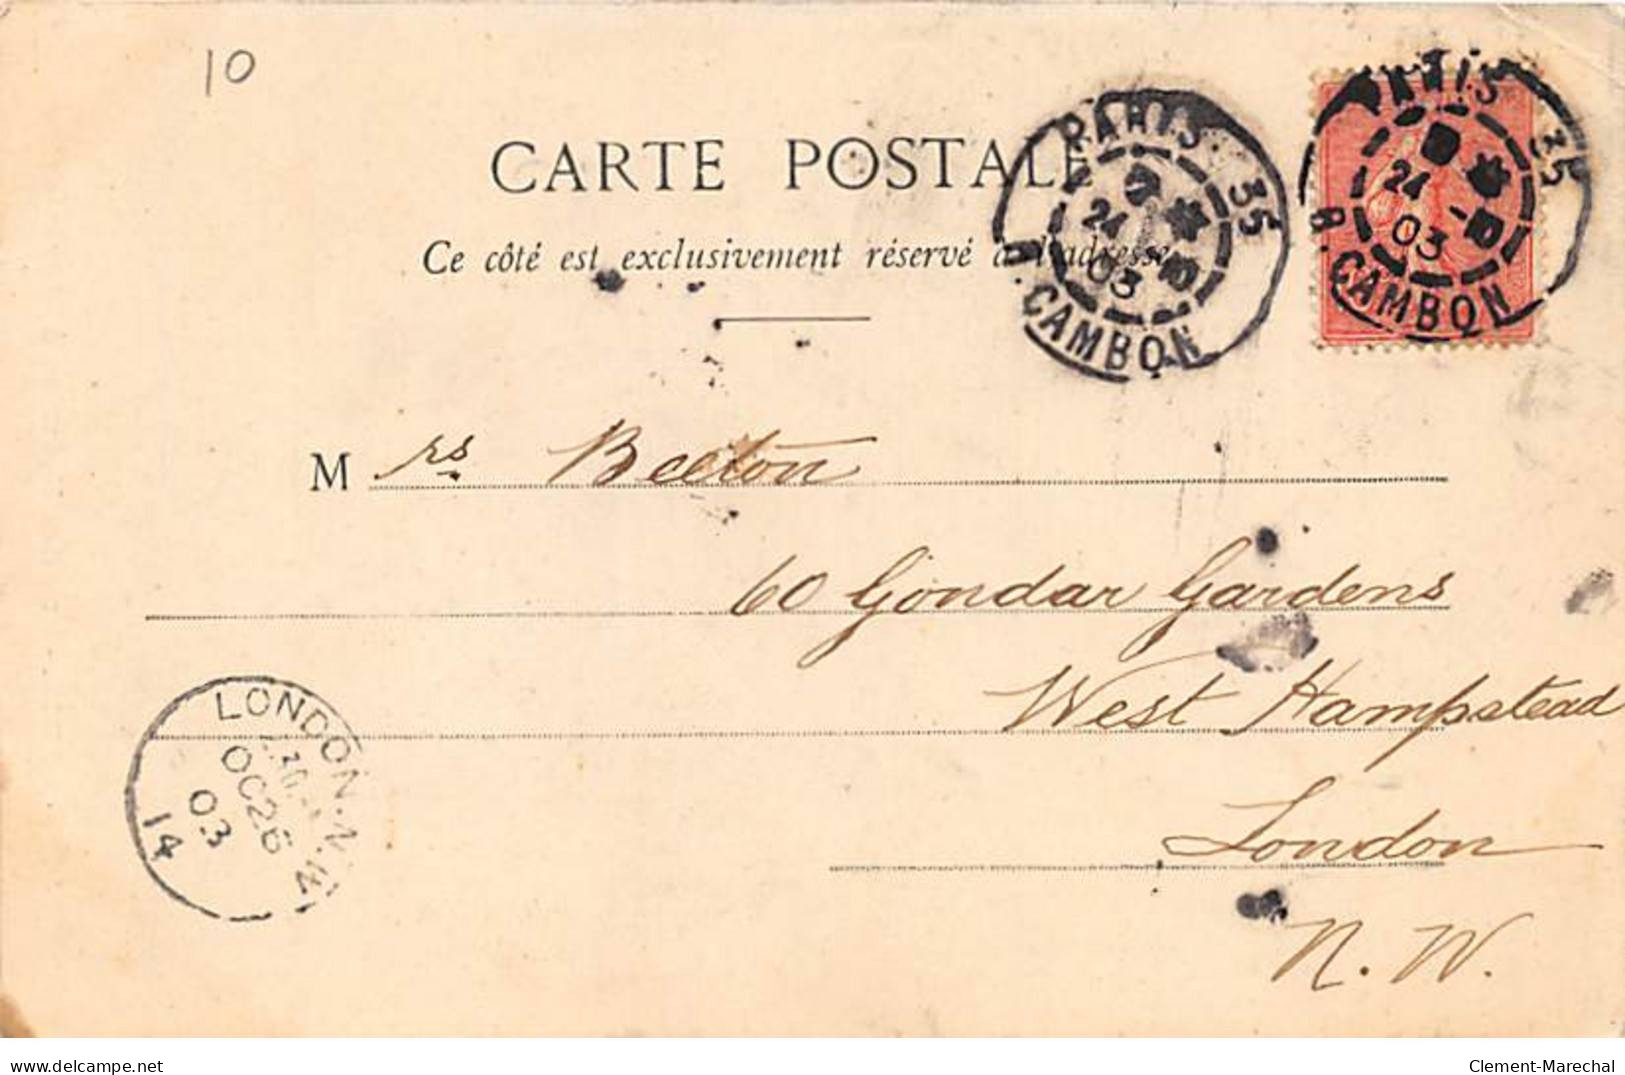 10
CARTE POSTALE
Ce côté est exclusivement réservé à l'adresse
PARIS 35
R. CAMBON
24
03
PARIS 35
R. CAMBON
24
03
Mrs Beeton
60 Gondar Gardens
West Hampstead
London
N. W.
LONDON. N.W.
OC 26
03
14
the-postcard.com
Clement-Marechal